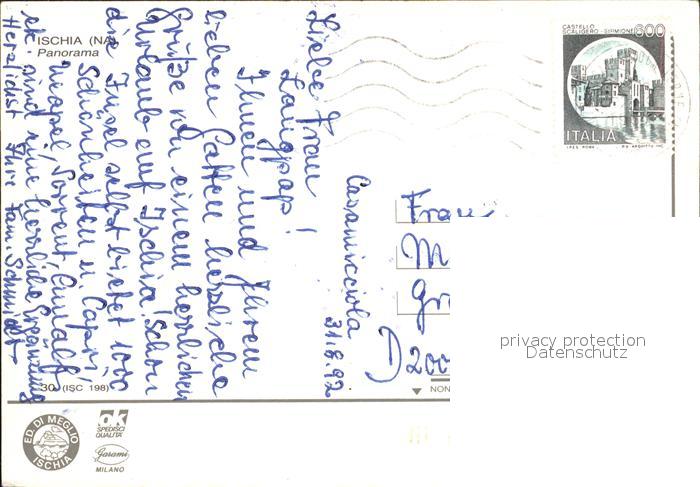 ISCHIA (NA)
- Panorama
CASTELLO
SCALIGERO - SIRMIONE 800
ITALIA
I.P.Z.S. ROMA
Liebe Frau
Langpap!
Ihnen und Ihrem
lieben Gatten herzliche
Grüße von einem herrlichen
Urlaub auf Ischia! Schon
die Insel selbst bietet 1000
Schönheiten u. Capri,
Neapel, Sorrent, Amalfi
etc sind eine herrliche Ergänzung
Herzlichst Ihre Fam. Schmidt
Casamicciola
31.8.92
Frau
M
Gr
D 200
privacy protection
Datenschutz
30 (ISC 198)
NON
ED. DI MEGLIO
ISCHIA
ok
SPEDISCI
QUALITA'
Garami
MILANO